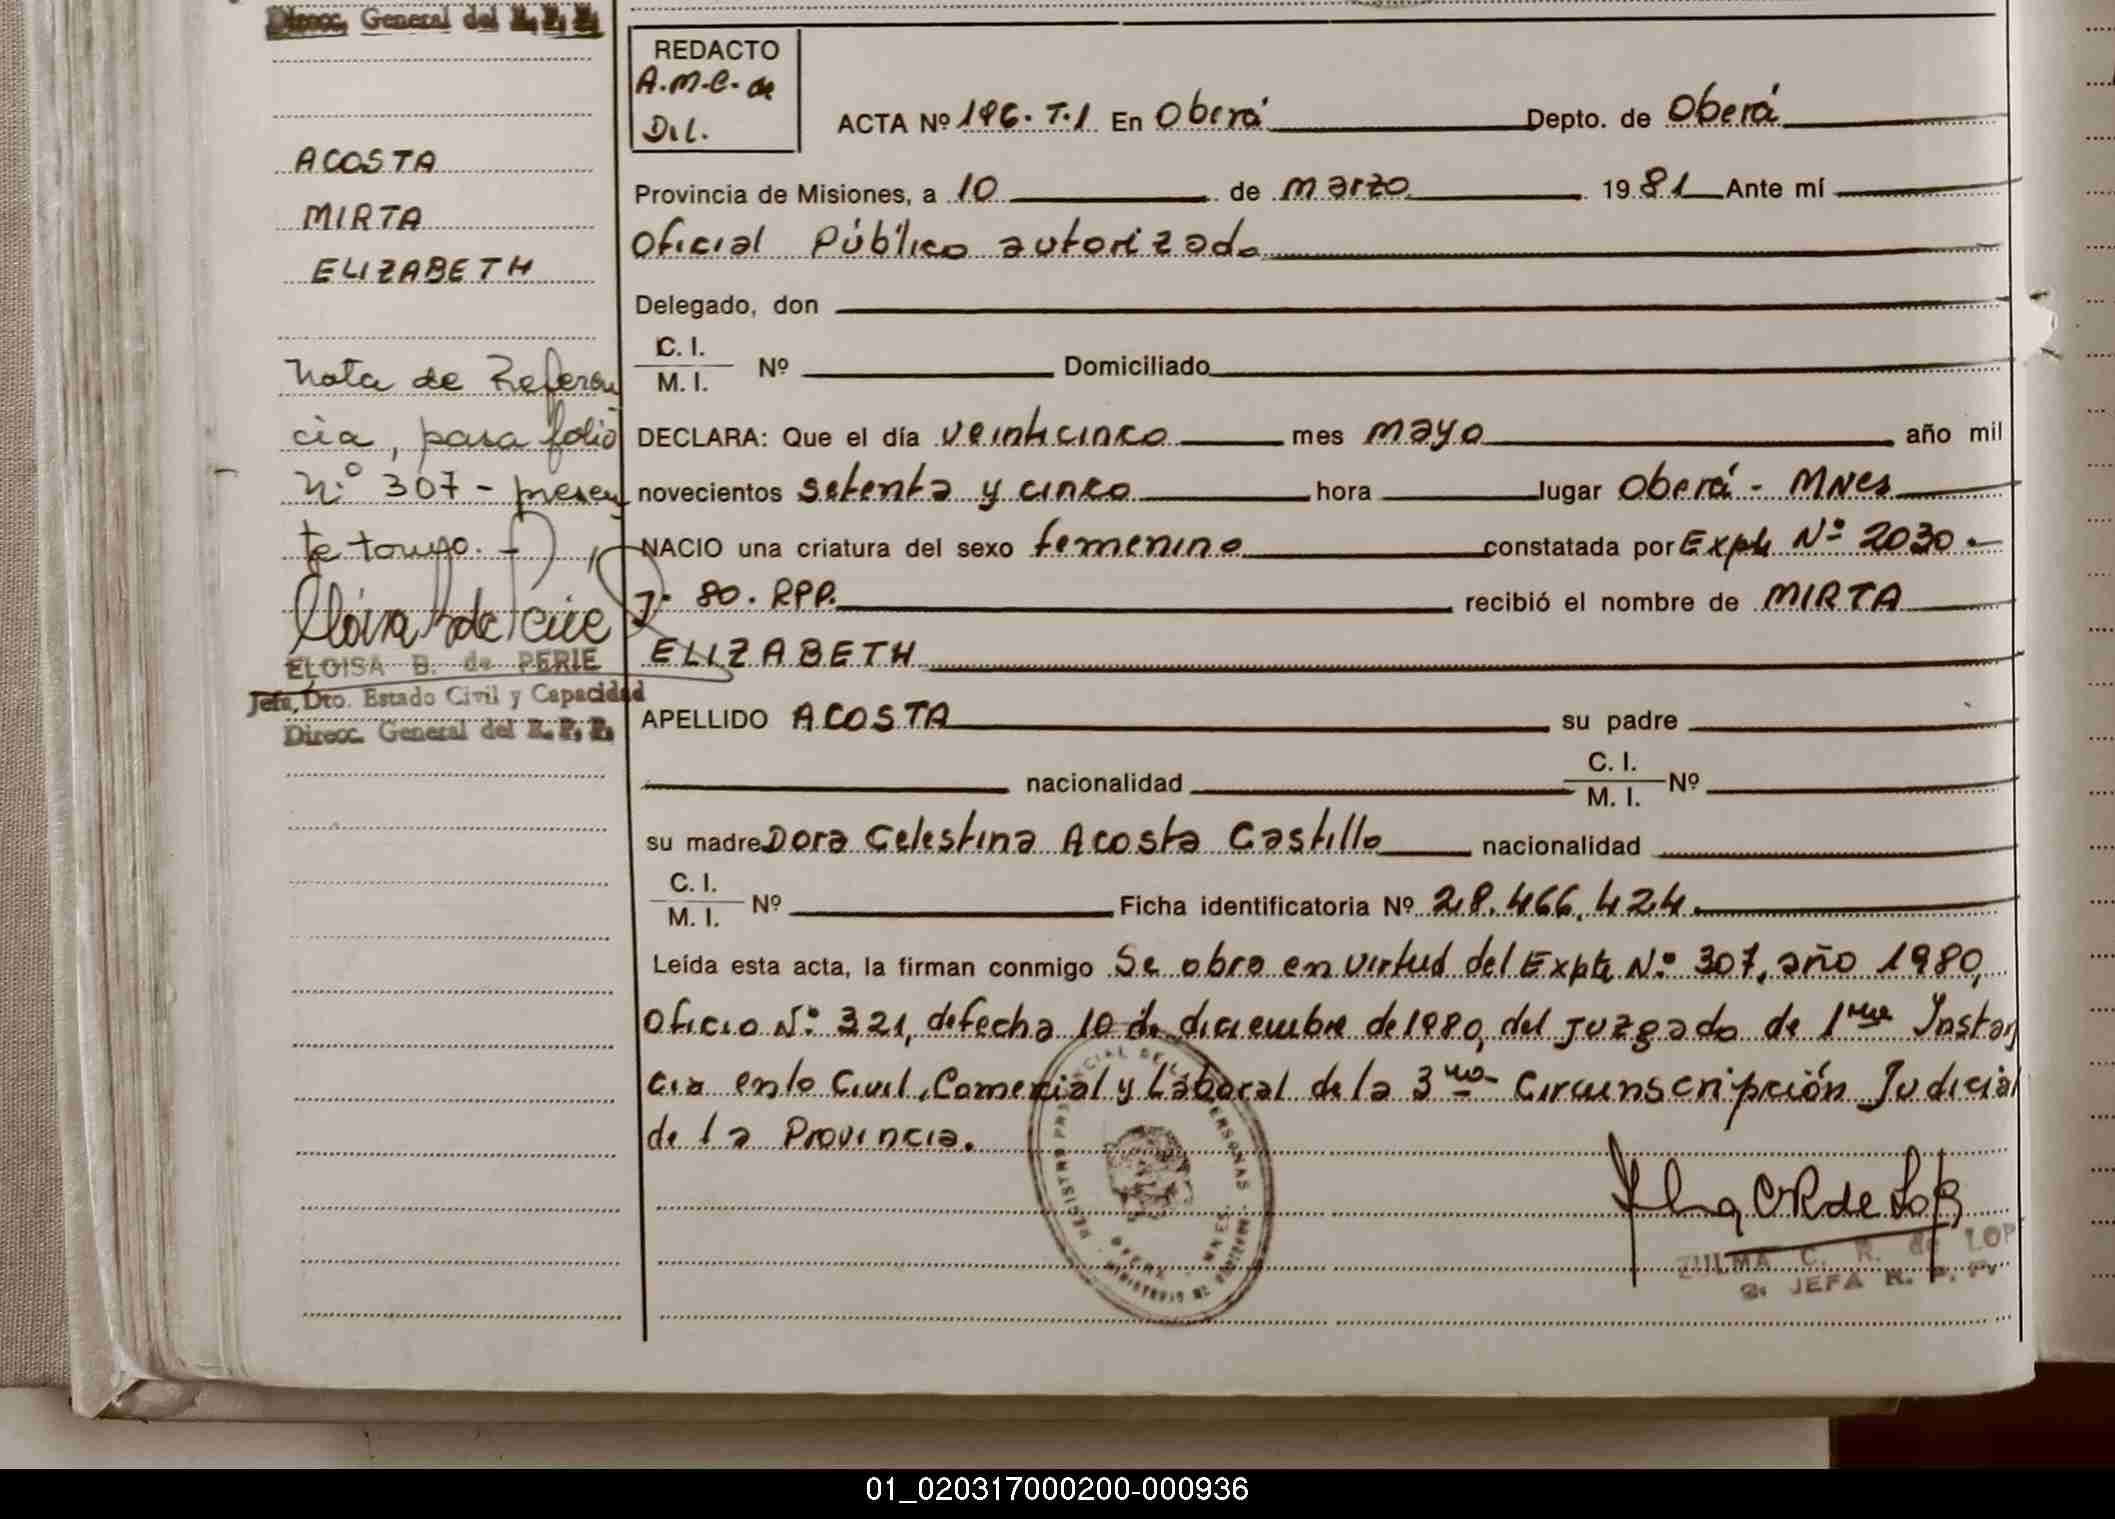 Direcc. General del R. P. P.
REDACTO
A.M.C. de
Dil.
ACTA Nº 196. T.1 En Oberá Depto. de Oberá
ACOSTA
MIRTA
ELIZABETH
Provincia de Misiones, a 10 de marzo 1981 Ante mí
Oficial Público autorizado
Delegado, don
C. I.
M. I. Nº Domiciliado
Nota de Referen
cia, pasa folio
Nº 307 - presen
te tomo. -
ELOISA B. de PERIE
Jefa, Dto. Estado Civil y Capacidad
Direcc. General del R. P. P.
DECLARA: Que el día veinticinco mes mayo año mil
novecientos setenta y cinco hora lugar Oberá - MNes
NACIO una criatura del sexo femenino constatada por Expte Nº 2030.-
80. RPP. recibió el nombre de MIRTA
ELIZABETH
APELLIDO ACOSTA su padre
nacionalidad C. I.
M. I. Nº
su madre Dora Celestina Acosta Castillo nacionalidad
C. I.
M. I. Nº Ficha identificatoria Nº 28.466.424.
Leída esta acta, la firman conmigo Se obra en virtud del Expte Nº 307, año 1980,
Oficio Nº 321, de fecha 10 de diciembre de 1980, del Juzgado de 1ra Instan
cia en lo Civil, Comercial y Laboral de la 3ra Circunscripción Judicial
de la Provincia.
ZULMA C. R. de LOP
JEFA R. P. P.
01_020317000200-000936